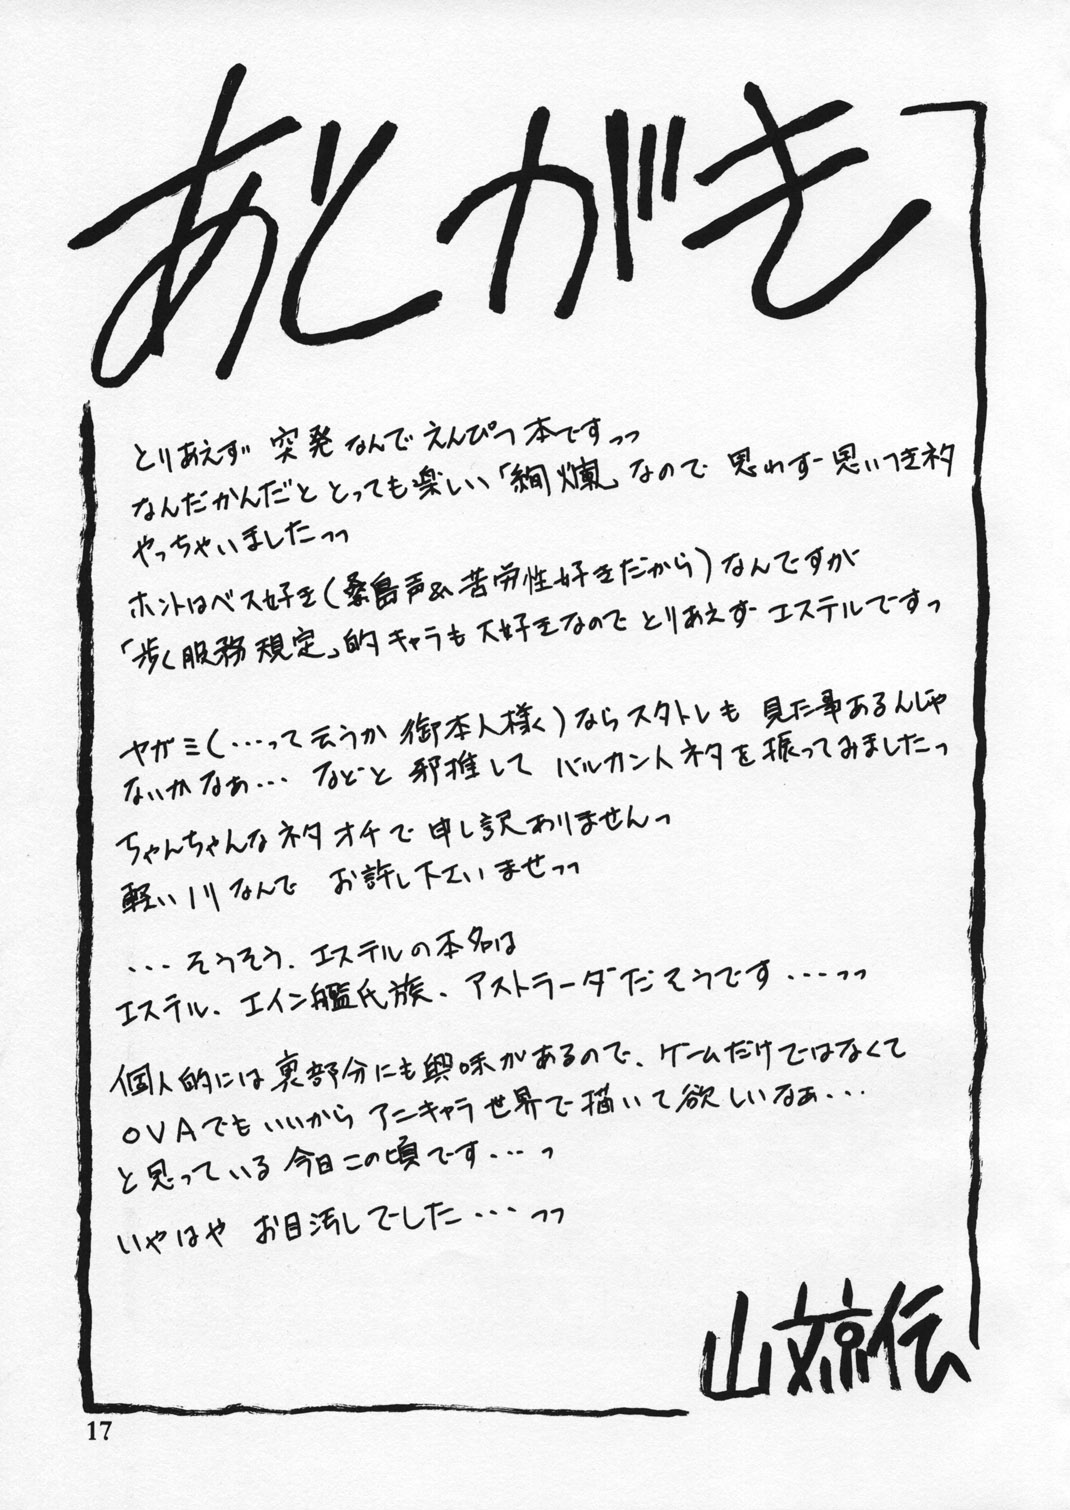 あとがき
とりあえず 突発なんでえんぴつ本ですっっ
なんだかんだととっても楽しい「絢爛」なので 思わず思いつきネタ
やっちゃいましたっっ
ホントはベス好き(桑島声&苦労性好きだから)なんですが
「歩く服務規定」的キャラも大好きなので とりあえず エステルですっ
ヤガミ(…って云うか 御本人様く)ならスタトレも 見た事あるんじゃ
ないかなぁ… などと 邪推して バルカン人ネタを振ってみましたっ
ちゃんちゃんなネタオチで申し訳ありませんっ
軽いノリなんで お許し下さいませっっ
…そうそう、エステルの本名は
エステル、エイン艦氏族、アストラーダだそうです…っっ
個人的には裏部分にも興味があるので、ゲームだけではなくて
OVAでもいいから アニキャラ世界で描いて欲しいなぁ…
と思っている今日この頃です…っ
いやはや お目汚しでした…っっ
山文京伝
17